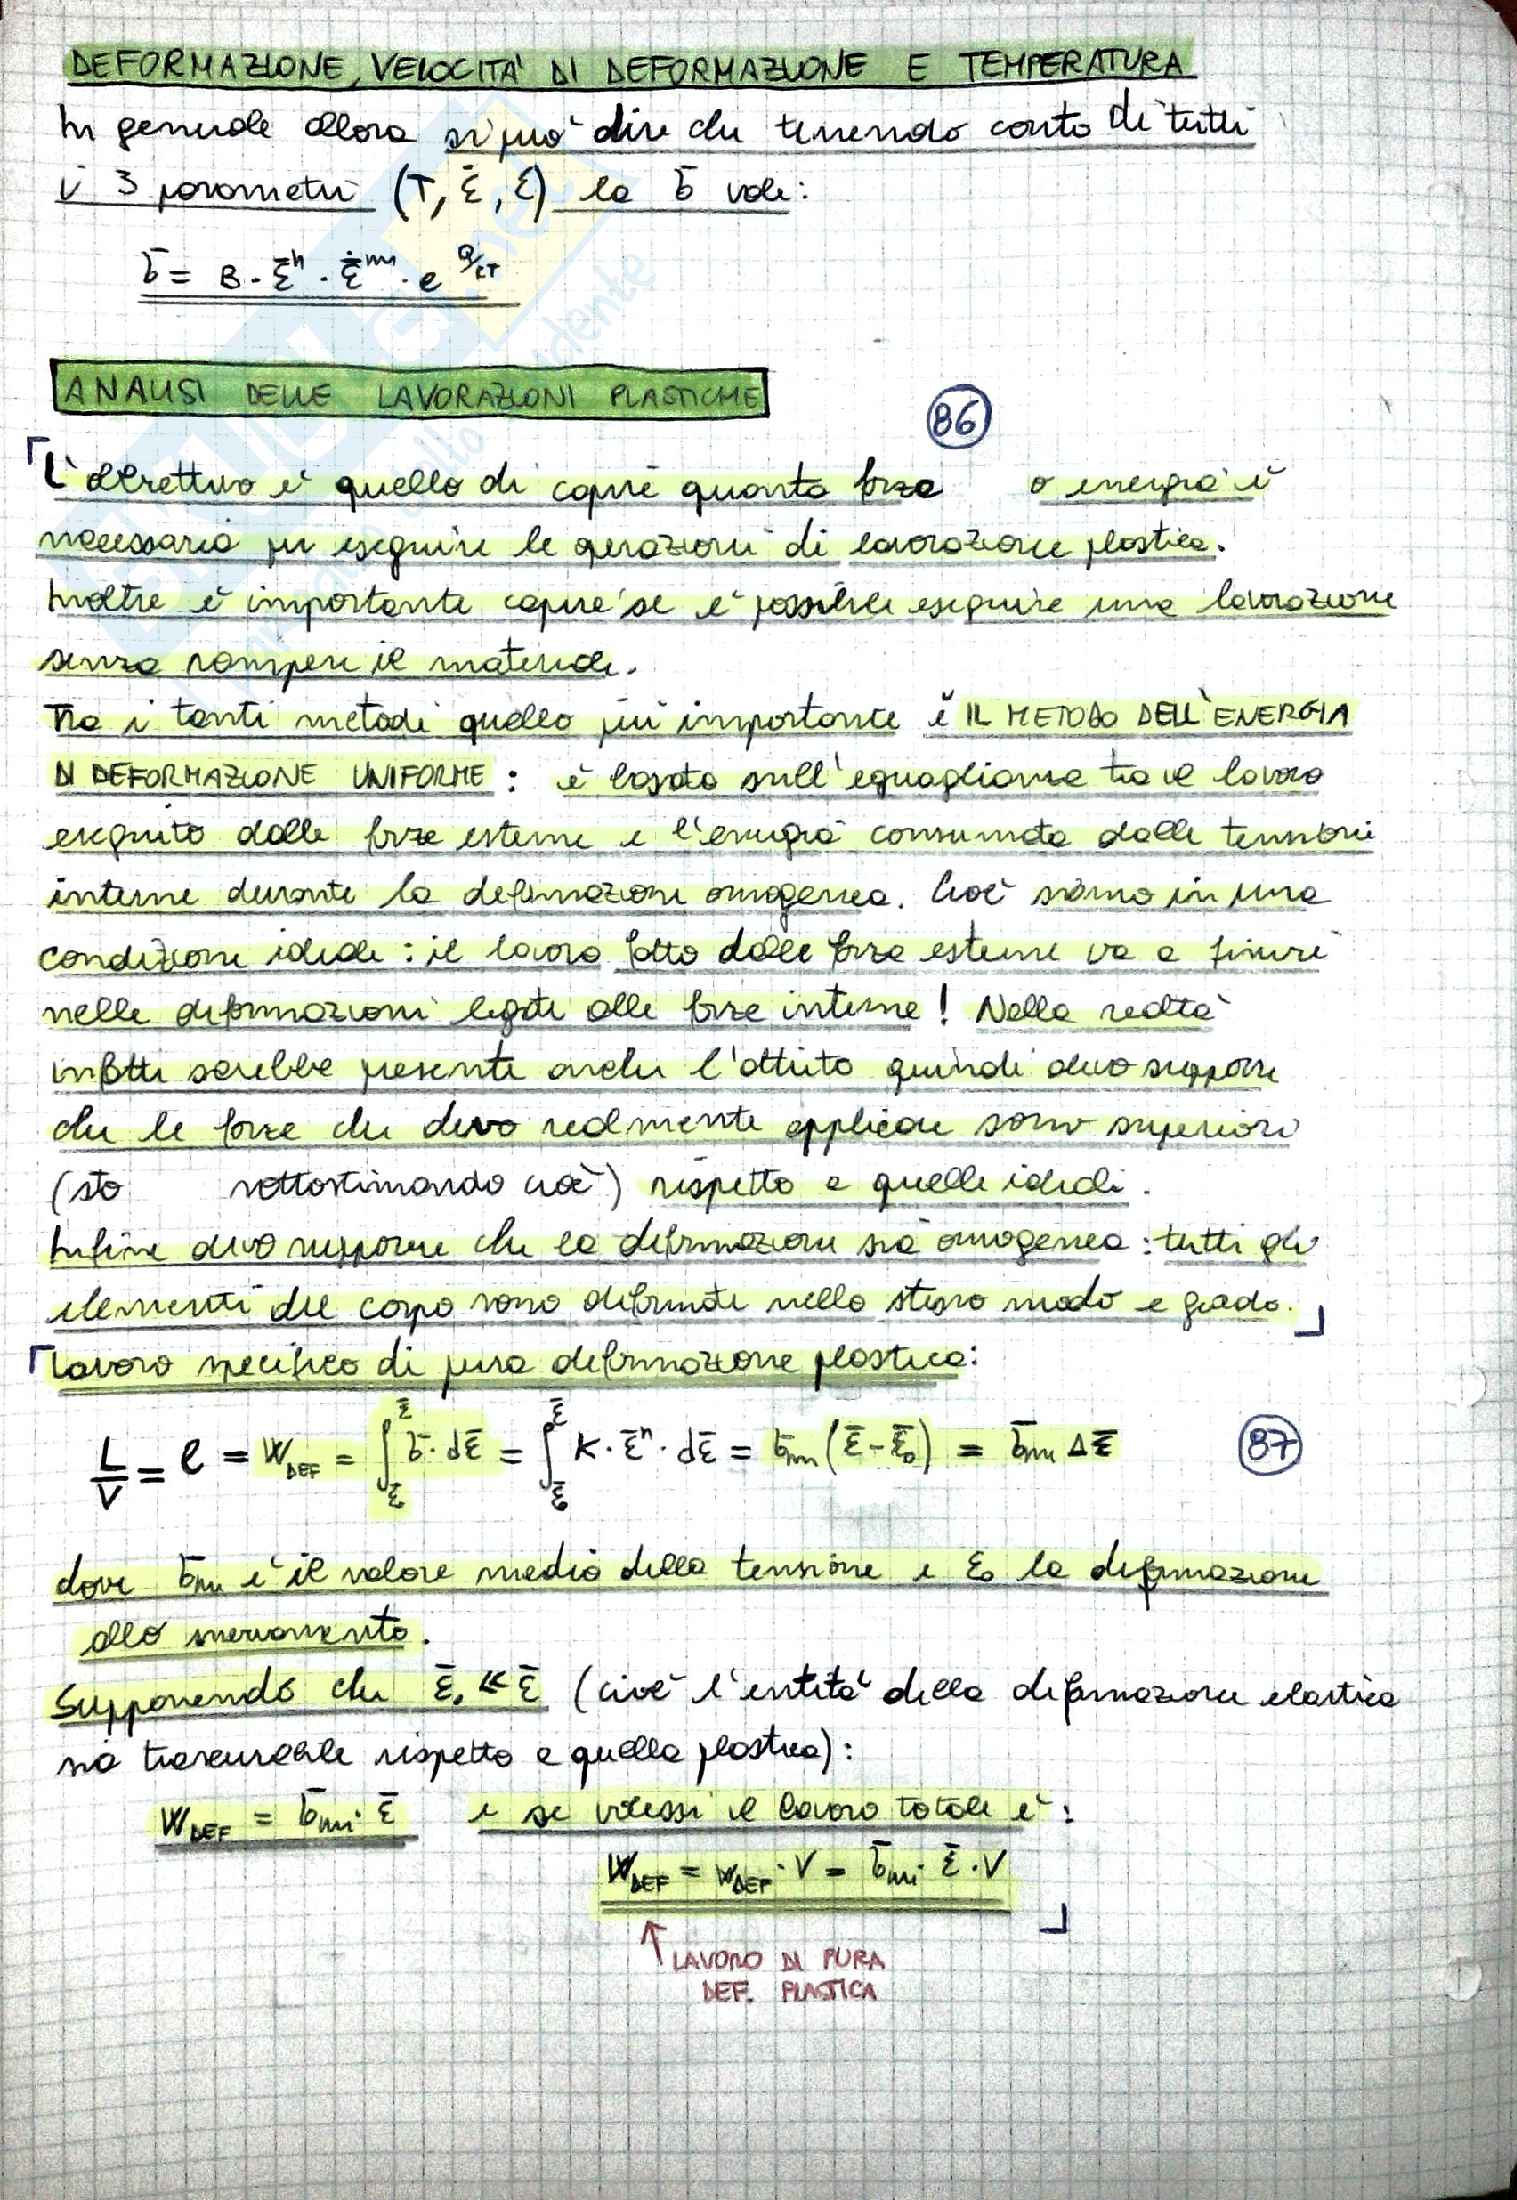 DEFORMAZIONE, VELOCITA' DI DEFORMAZIONE E TEMPERATURA
In generale allora si può dire che tenendo conto di tutti
i 3 parametri (T, ε̄, ε̇) la σ̄ vale:
σ̄ = B · ε̄ⁿ · ε̄̇ᵐ · e^(Q/RT)
ANALISI DELLE LAVORAZIONI PLASTICHE
86
L'obiettivo è quello di capire quanta forza o energia è
necessaria per eseguire le operazioni di lavorazione plastica.
Inoltre è importante capire se è possibile eseguire una lavorazione
senza rompere il materiale.
Tra i tanti metodi quello più importante è IL METODO DELL'ENERGIA
DI DEFORMAZIONE UNIFORME: è basato sull'eguaglianza tra il lavoro
eseguito dalle forze esterne e l'energia consumata dalle tensioni
interne durante la deformazione omogenea. Cioè siamo in una
condizione ideale: il lavoro fatto dalle forze esterne va a finire
nelle deformazioni legate alle forze interne! Nella realtà
infatti sarebbe presente anche l'attrito quindi devo supporre
che le forze che devo realmente applicare sono superiori
(sto sottostimando cioè) rispetto a quelle ideali.
Infine devo supporre che la deformazione sia omogenea: tutti gli
elementi del corpo sono deformati nello stesso modo e grado.
Lavoro specifico di pura deformazione plastica:
L/V = l = W_DEF = ∫_ε̄₀^ε̄ σ̄ · dε̄ = ∫_ε̄₀^ε̄ K · ε̄ⁿ · dε̄ = σ̄m (ε̄ - ε̄₀) = σ̄m Δε̄
87
dove σ̄m è il valore medio della tensione e ε₀ la deformazione
allo snervamento.
Supponendo che ε̄₀ << ε̄ (cioè l'entità della deformazione elastica
sia trascurabile rispetto a quella plastica):
W_DEF = σ̄m · ε̄ e se volessi il lavoro totale è:
W_DEF = w_DEF · V = σ̄m · ε̄ · V
↑ LAVORO DI PURA
DEF. PLASTICA